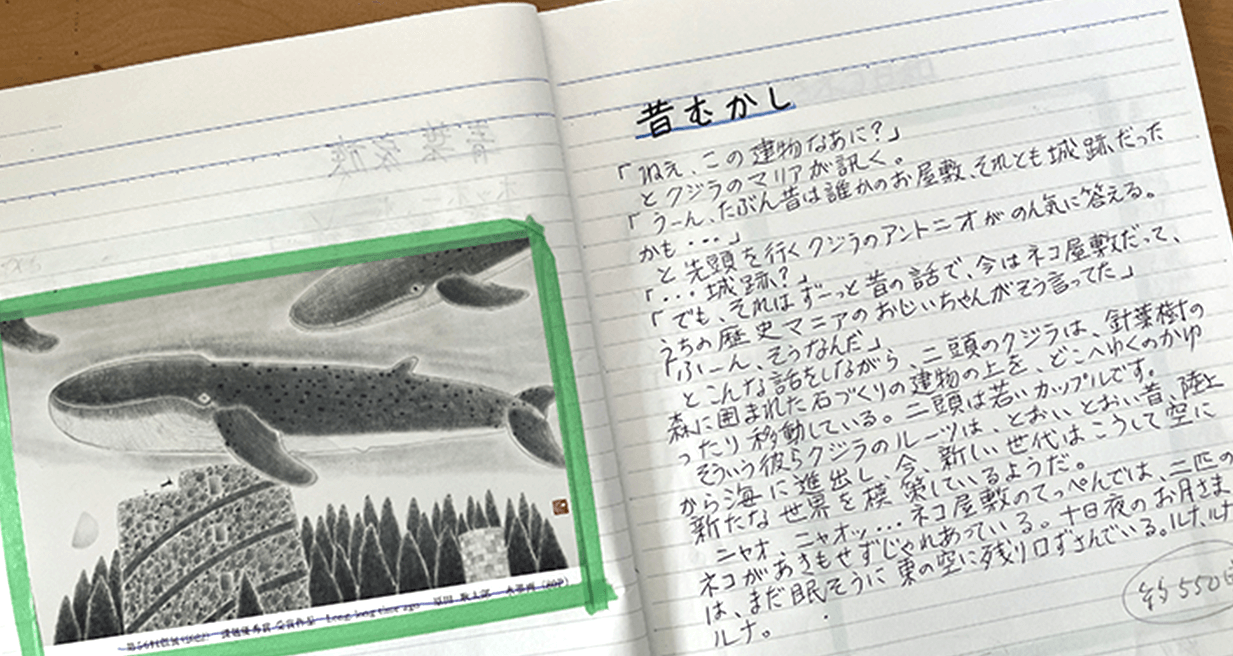 昔むかし
「ねえ、この建物なあに?」
とクジラのマリアが訊く。
「うーん、たぶん昔は誰かのお屋敷、それとも城跡だった
かも・・・」
と先頭を行くクジラのアントニオがのん気に答える。
「・・・城跡?」
「でも、それはずーっと昔の話で、今はネコ屋敷だって、
うちの歴史マニアのおじいちゃんがそう言ってた」
「ふーん、そうなんだ」
とこんな話をしながら、二頭のクジラは、針葉樹の
森に囲まれた石づくりの建物の上を、どこへゆくのかゆ
ったり移動している。二頭は若いカップルです。
そういう彼らクジラのルーツは、とおいとおい昔、陸上
から海に進出し、今、新しい世代はこうして空に
新たな世界を模索しているようだ。
ニャオ、ニャオッ・・・ネコ屋敷のてっぺんでは、二匹の
ネコがあきもせずじゃれあっている。十日夜のお月さま
は、まだ眠そうに東の空に残り口ずさんでいる。ルナ、ルナ
ルナ。
約550
青葉家族
Long long time ago